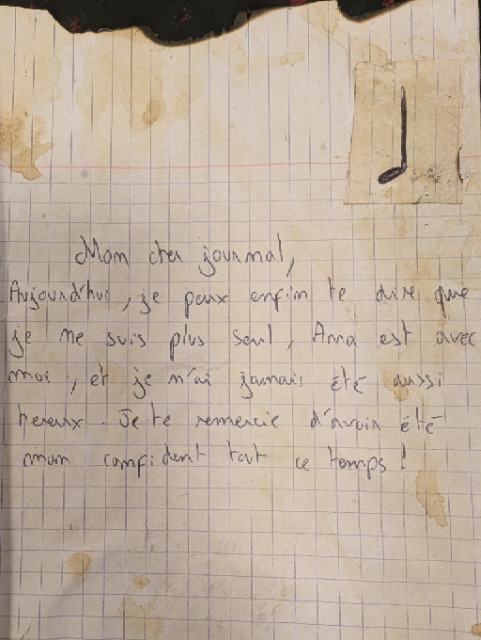 Mon cher journal,
Aujourd'hui, je peux enfin te dire que
je ne suis plus seul, Anna est avec
moi, et je n'ai jamais été aussi
hereux. Je te remercie d'avoir été
mon confident tout ce temps !